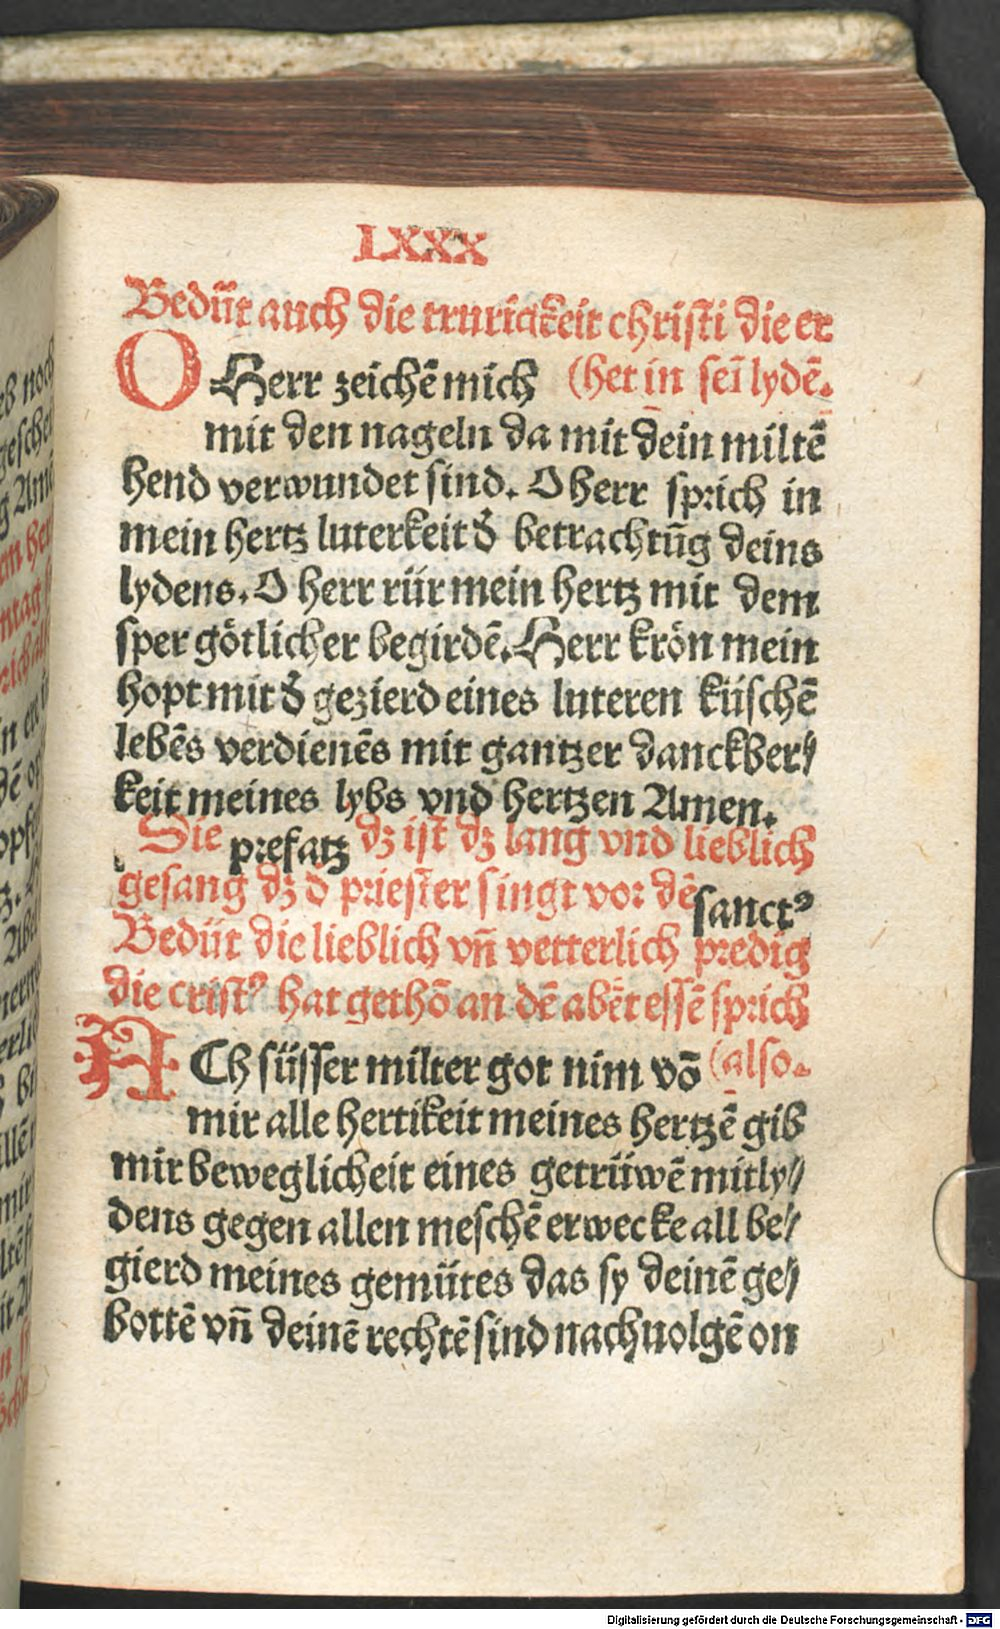 LXXX
Bedüt auch die trurigkeit christi die er
O Herr zeichē mich (het in seī lydē.
mit den nageln da mit dein miltē
hend verwundet sind. O herr sprich in
mein hertz luterkeit đ betrachtūg deins
lydens. O herr rür mein hertz mit dem
sper götlicher begirdē. Herr krön mein
hopt mit đ gezierd eines luteren küschē
lebēs verdienēs mit gantzer danckber⸗
keit meines lybs vnd hertzen Amen.
Die prefatz dz ist dz lang vnd lieblich
gesang dz d priester singt vor dē sanctꝰ
Bedüt die lieblich vn̄ vetterlich predig
die cristꝰ hat gethō an dē abēt essē sprich
ACh süsser milter got nim vō (also.
mir alle hertikeit meines hertzē gib
mir beweglicheit eines getrüwē mitly⸗
dens gegen allen meschē erwecke all be⸗
gierd meines gemütes das sy deinē ge⸗
bottē vn̄ deinē rechtē sind nachuolgē on
Digitalisierung gefördert durch die Deutsche Forschungsgemeinschaft - DFG